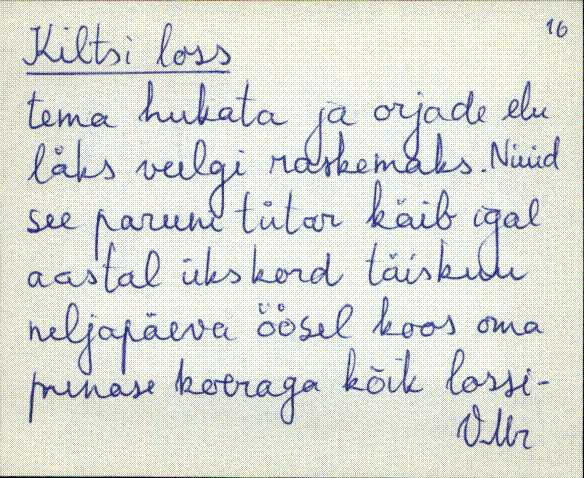 16
Kiltsi loss
tema hukata ja orjade elu
läks veelgi raskemaks. Nüüd
see paruni tütar käib igal
aastal ükskord täiskuu
neljapäeva öösel koos oma
punase koeraga kõik lossi-